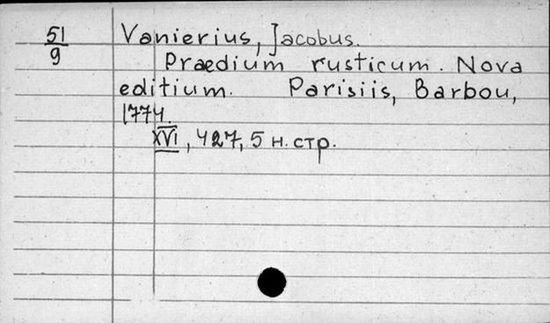 51
9
Vanierius, Jacobus.
Praedium rusticum. Nova
editium. Parisiis, Barbou,
1774.
XVI, 427, 5 н. стр.